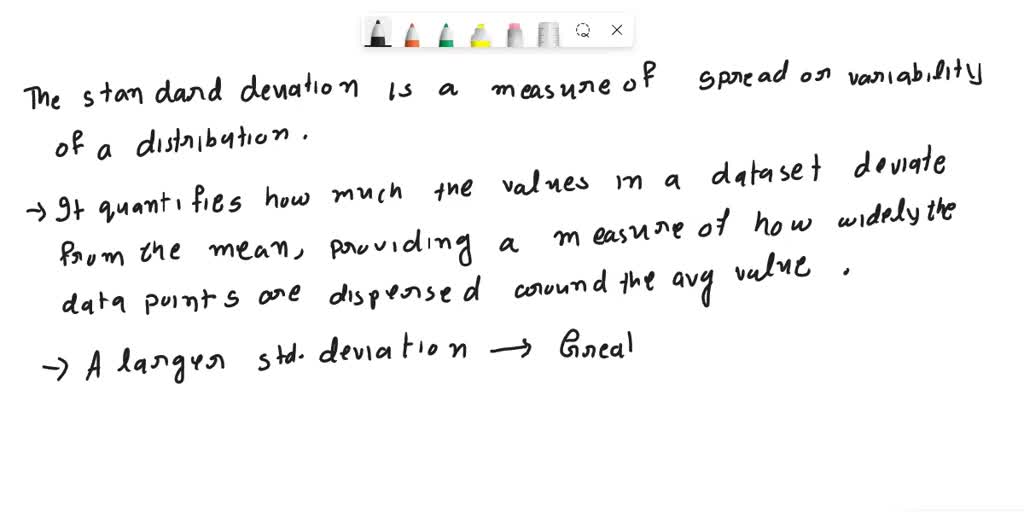 The standard deviation is a measure of spread or variability
of a distribution.
→ It quantifies how much the values in a dataset deviate
from the mean, providing a measure of how widely the
data points are dispersed around the avg value.
→ A larger std. deviation → Greal